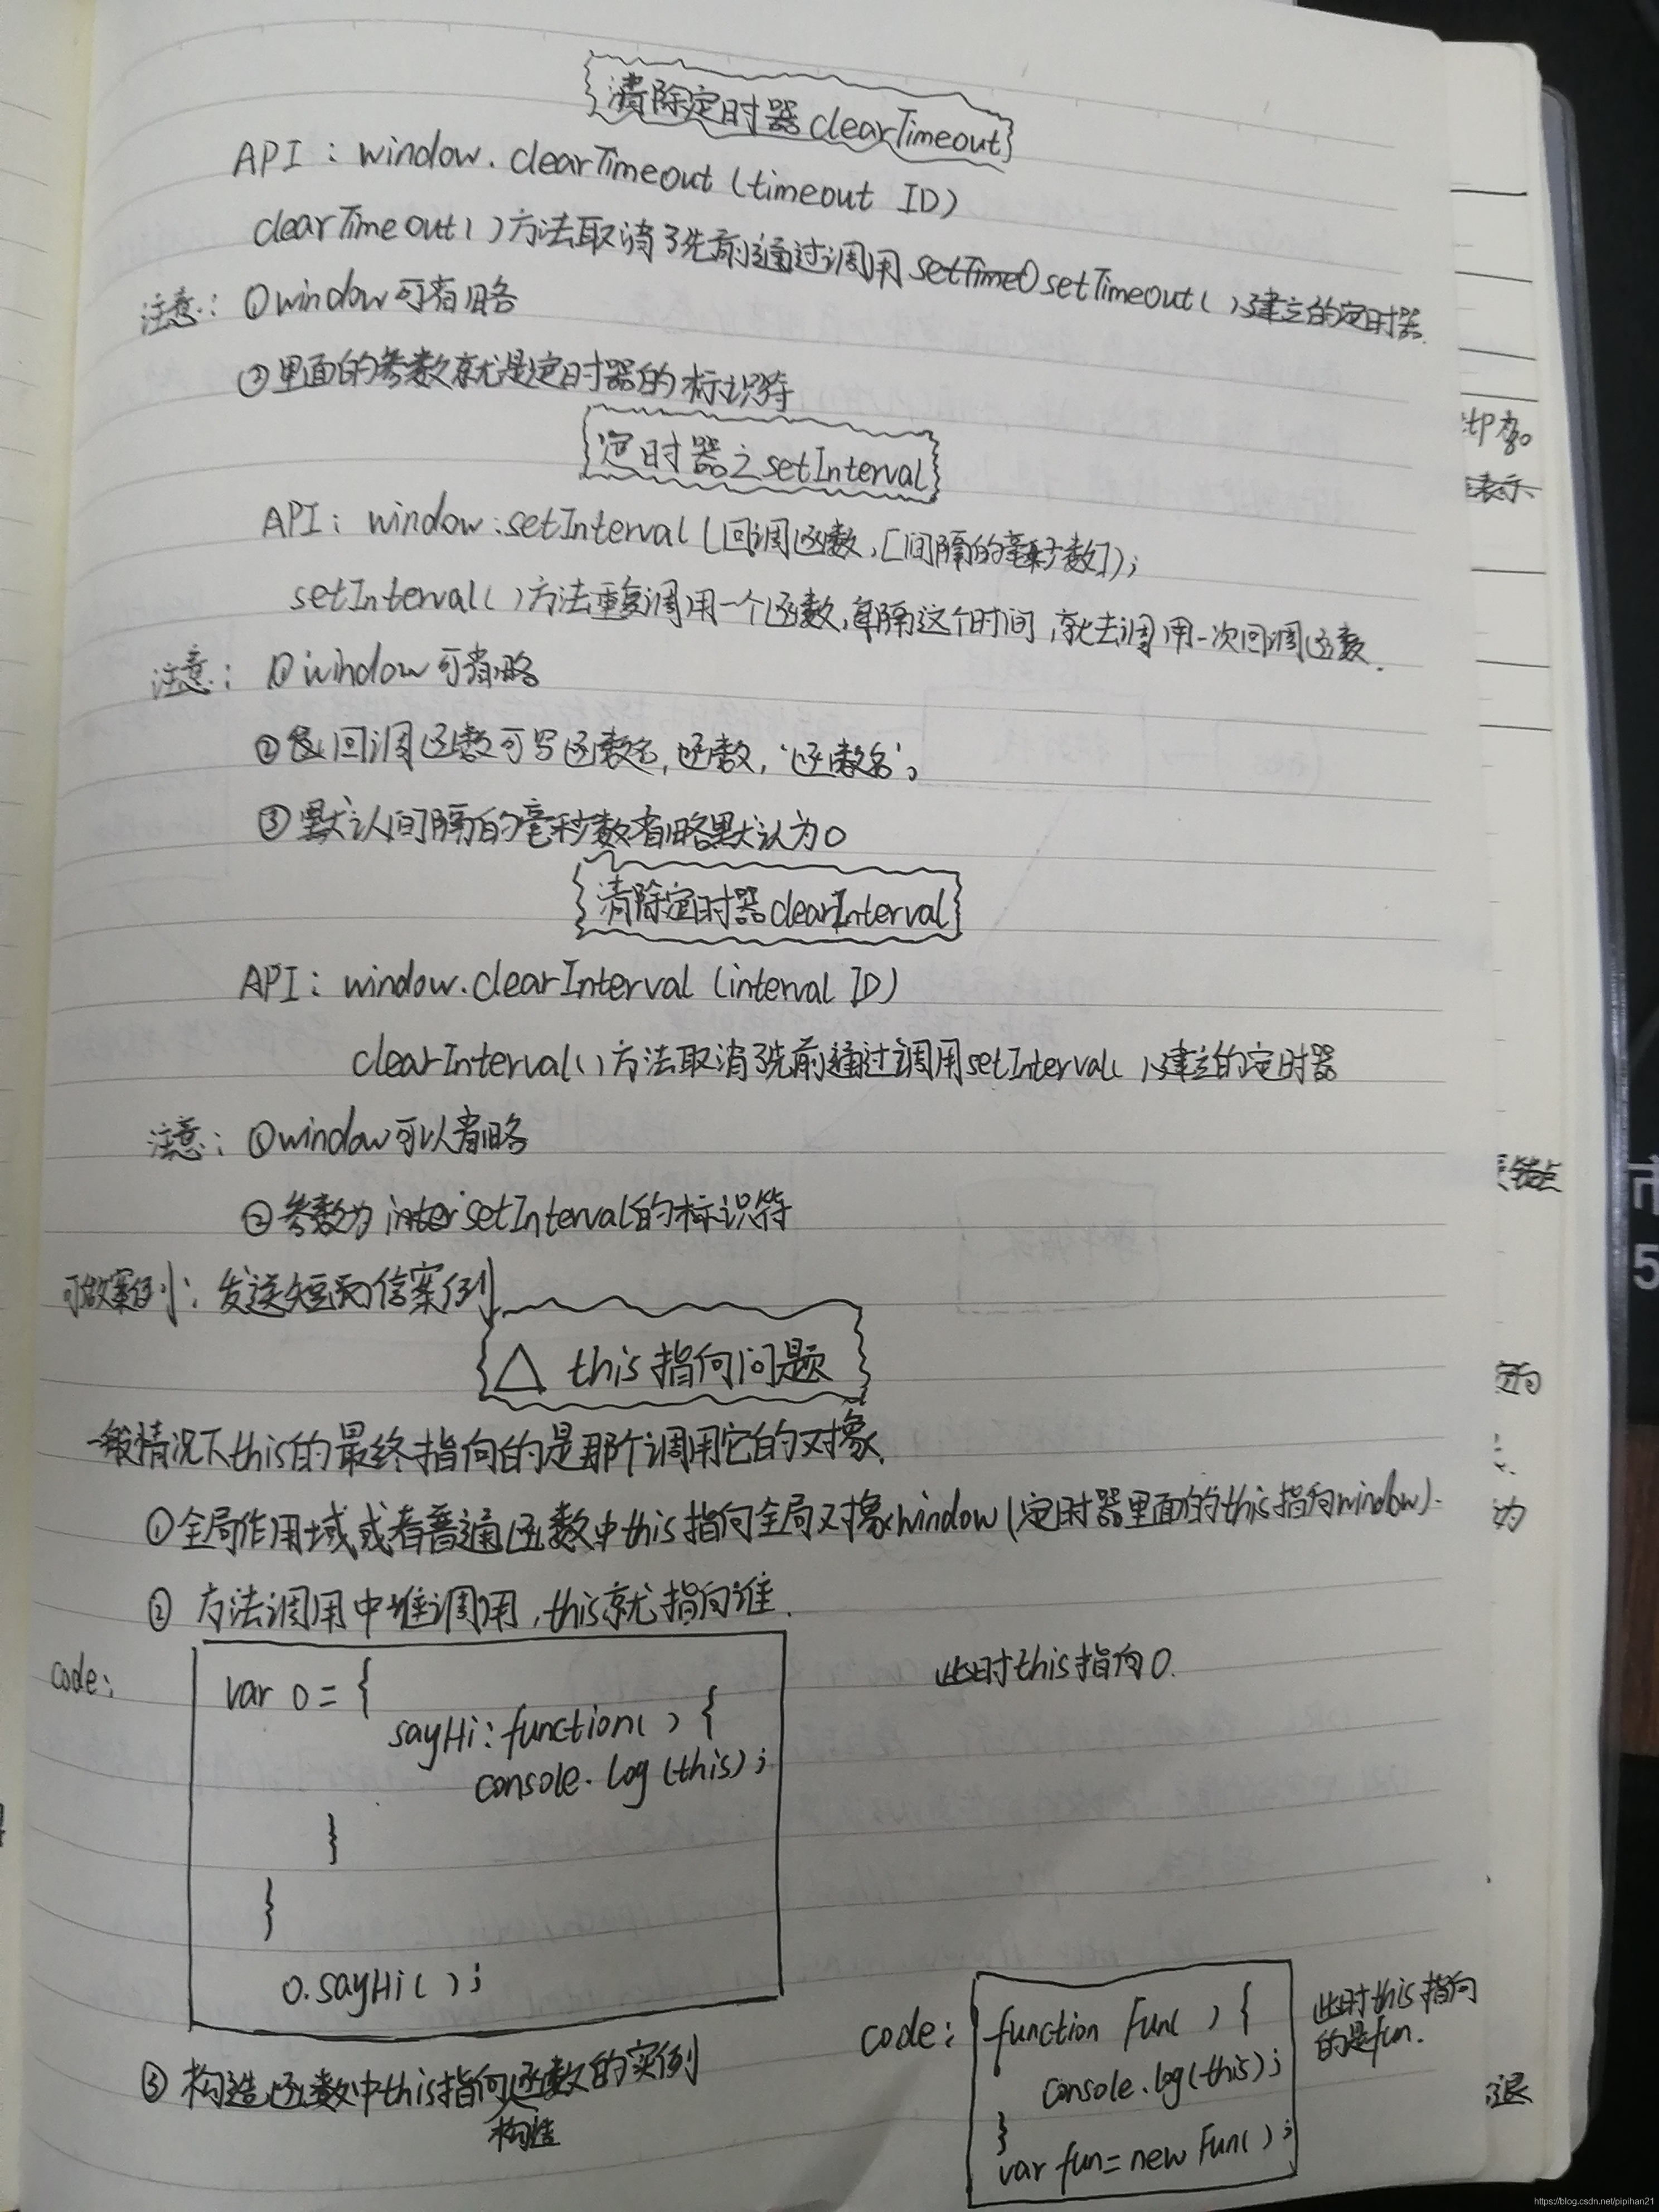 清除定时器clearTimeout
API：window.clearTimeout(timeout ID)
clearTimeout()方法取消了先前通过调用setTimeO setTimeout()建立的定时器.
注意：①window可省略
②里面的参数就是定时器的标识符
定时器之setInterval
API：window.setInterval(回调函数,[间隔的毫秒数]);
setInterval()方法重复调用一个函数,每隔这个时间,就去调用一次回调函数.
注意：①window可省略
②回调函数可写函数名,函数,'函数名';
③默认间隔的毫秒数省略默认为0
清除定时器clearInterval
API：window.clearInterval(interval ID)
clearInterval()方法取消了先前通过调用setInterval()建立的定时器
注意：①window可以省略
②参数为inter setInterval的标识符
可做案例：发送短信案例
△ this指向问题
一般情况下this的最终指向的是那个调用它的对象.
①全局作用域或者普通函数中this指向全局对象window(定时器里面的this指向window).
② 方法调用中谁调用,this就指向谁.
code:
var o = {
sayHi: function() {
console.log(this);
}
}
o.sayHi();
此时this指向o.
③构造函数中this指向构造函数的实例
code:
function Fun() {
console.log(this);
}
var fun = new Fun();
此时this指向
的是fun.
表示
为
退
市
5
https://blog.csdn.net/pipihan21